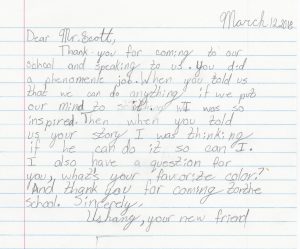 March 12, 2018
Dear Mr. Scott,
Thank-you for coming to our
school and speaking to us. You did
a phenomenic job. When you told us
that we can do anything if we put
our mind to I was so
inspired. Then when you told
us your story I was thinking
if he can do it so can I.
I also have a question for
you, what's your favorite color?
And thank you for coming to the
school. Sincerely,
Ushang, your new friend